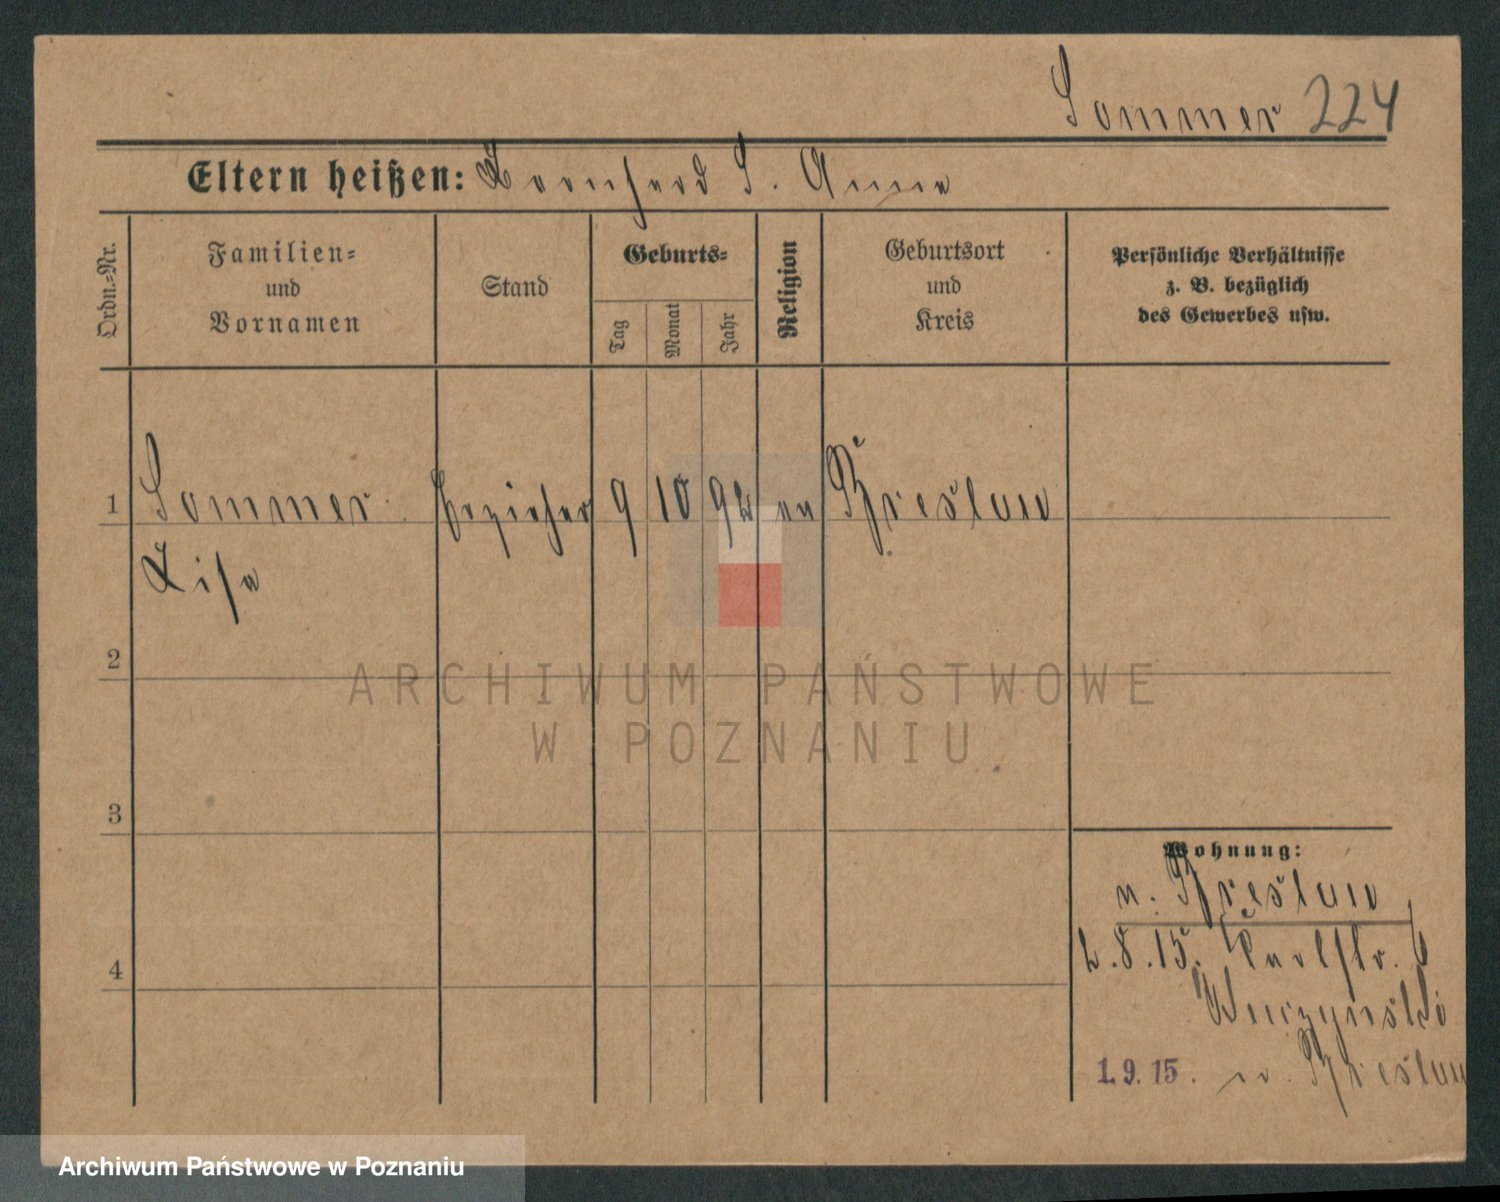 Sommer 224
Eltern heißen: Bernhard S. Anna
Ordn.-Nr.
Familien=
und
Vornamen
Stand
Geburts=
Tag
Monat
Jahr
Religion
Geburtsort
und
Kreis
Persönliche Verhältnisse
z. B. bezüglich
des Gewerbes usw.
1 Sommer Erzieher 9 10 92 ev Breslau
Lisa
2
3
4
Wohnung:
v. Breslau
2.8.15. Karlstr. 6
1.9.15. n. Breslau
ARCHIWUM PAŃSTWOWE
W POZNANIU
Archiwum Państwowe w Poznaniu